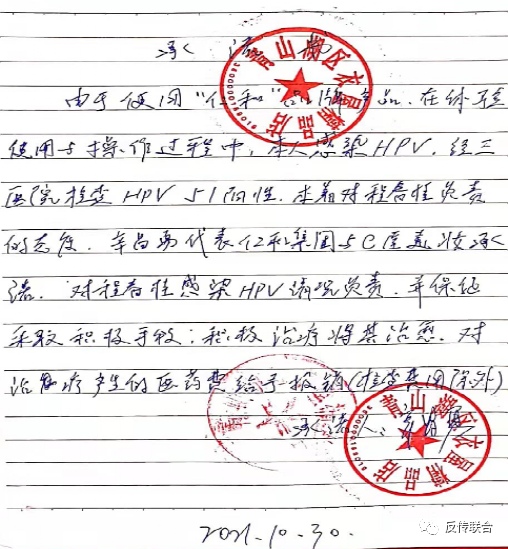 承诺
由于使用“仁和”品牌产品.在体验
使用与操作过程中,本人感染HPV.经三
医院检查HPV 51阳性.本着对程春桂负责
的态度.代表仁和集团与C匠美妆承
诺.对程春桂感染HPV情况负责.并保证
采取积极手段:积极治疗将其治愈.对
治疗产生的医药费给予报销(检查费用除外)
承诺人:
青山湖区衣昌精品店
2021.10.30.
反传联合